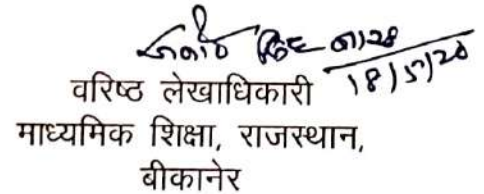 18/5/20
वरिष्ठ लेखाधिकारी
माध्यमिक शिक्षा, राजस्थान,
बीकानेर